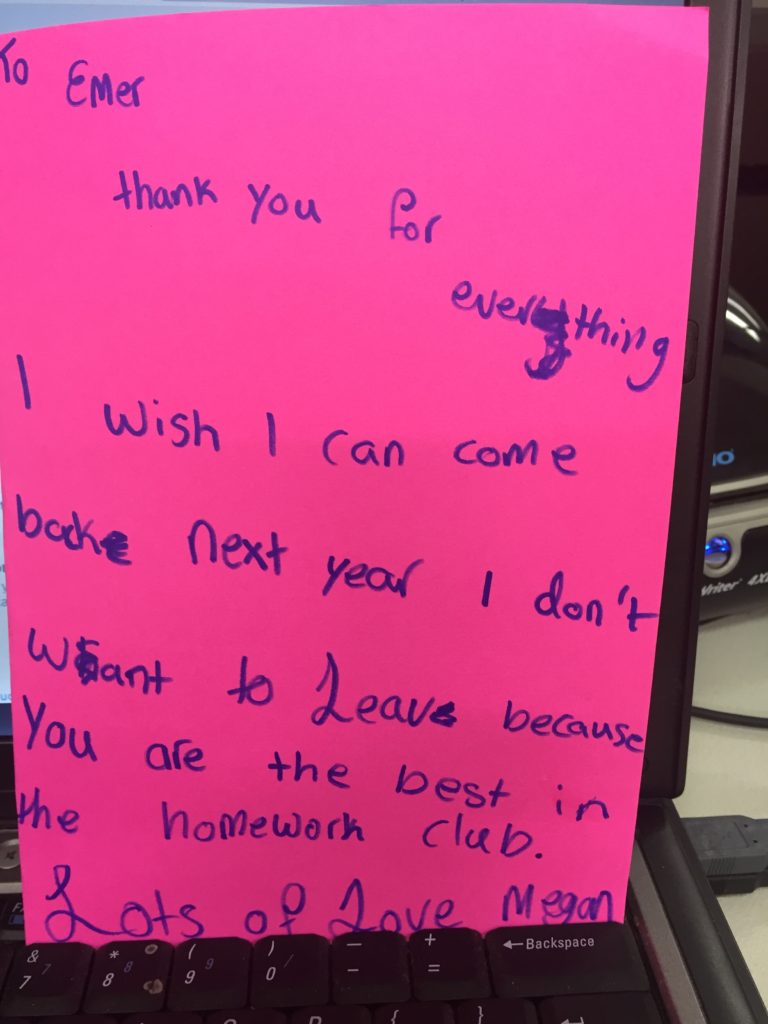 To Emer
thank you for
everything
I wish I can come
back next year I don't
want to Leave because
You are the best in
the homework club.
Lots of Love Megan
& 7 7
* 8 8
( 9 9
) 0 /
— -
+ =
←Backspace
{
}